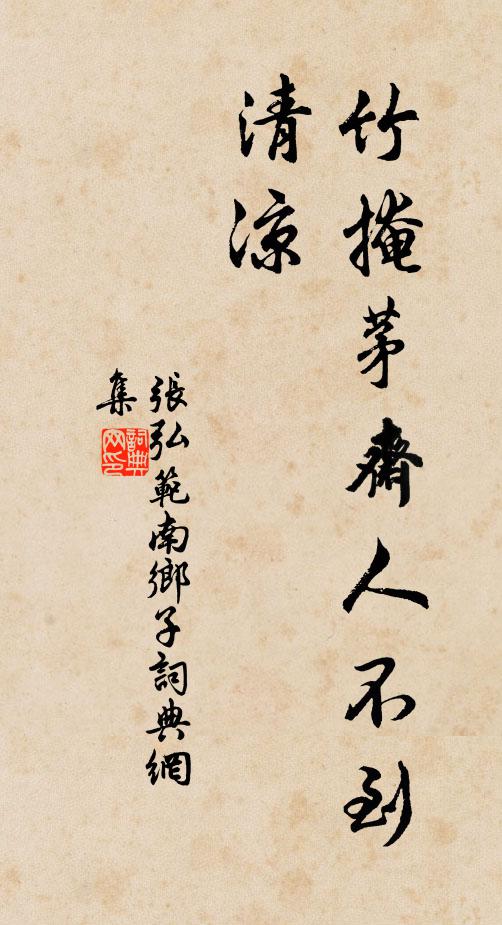 竹掩茅齋人不到
清涼
張弘範南鄉子詞典網
集
詞典
网印